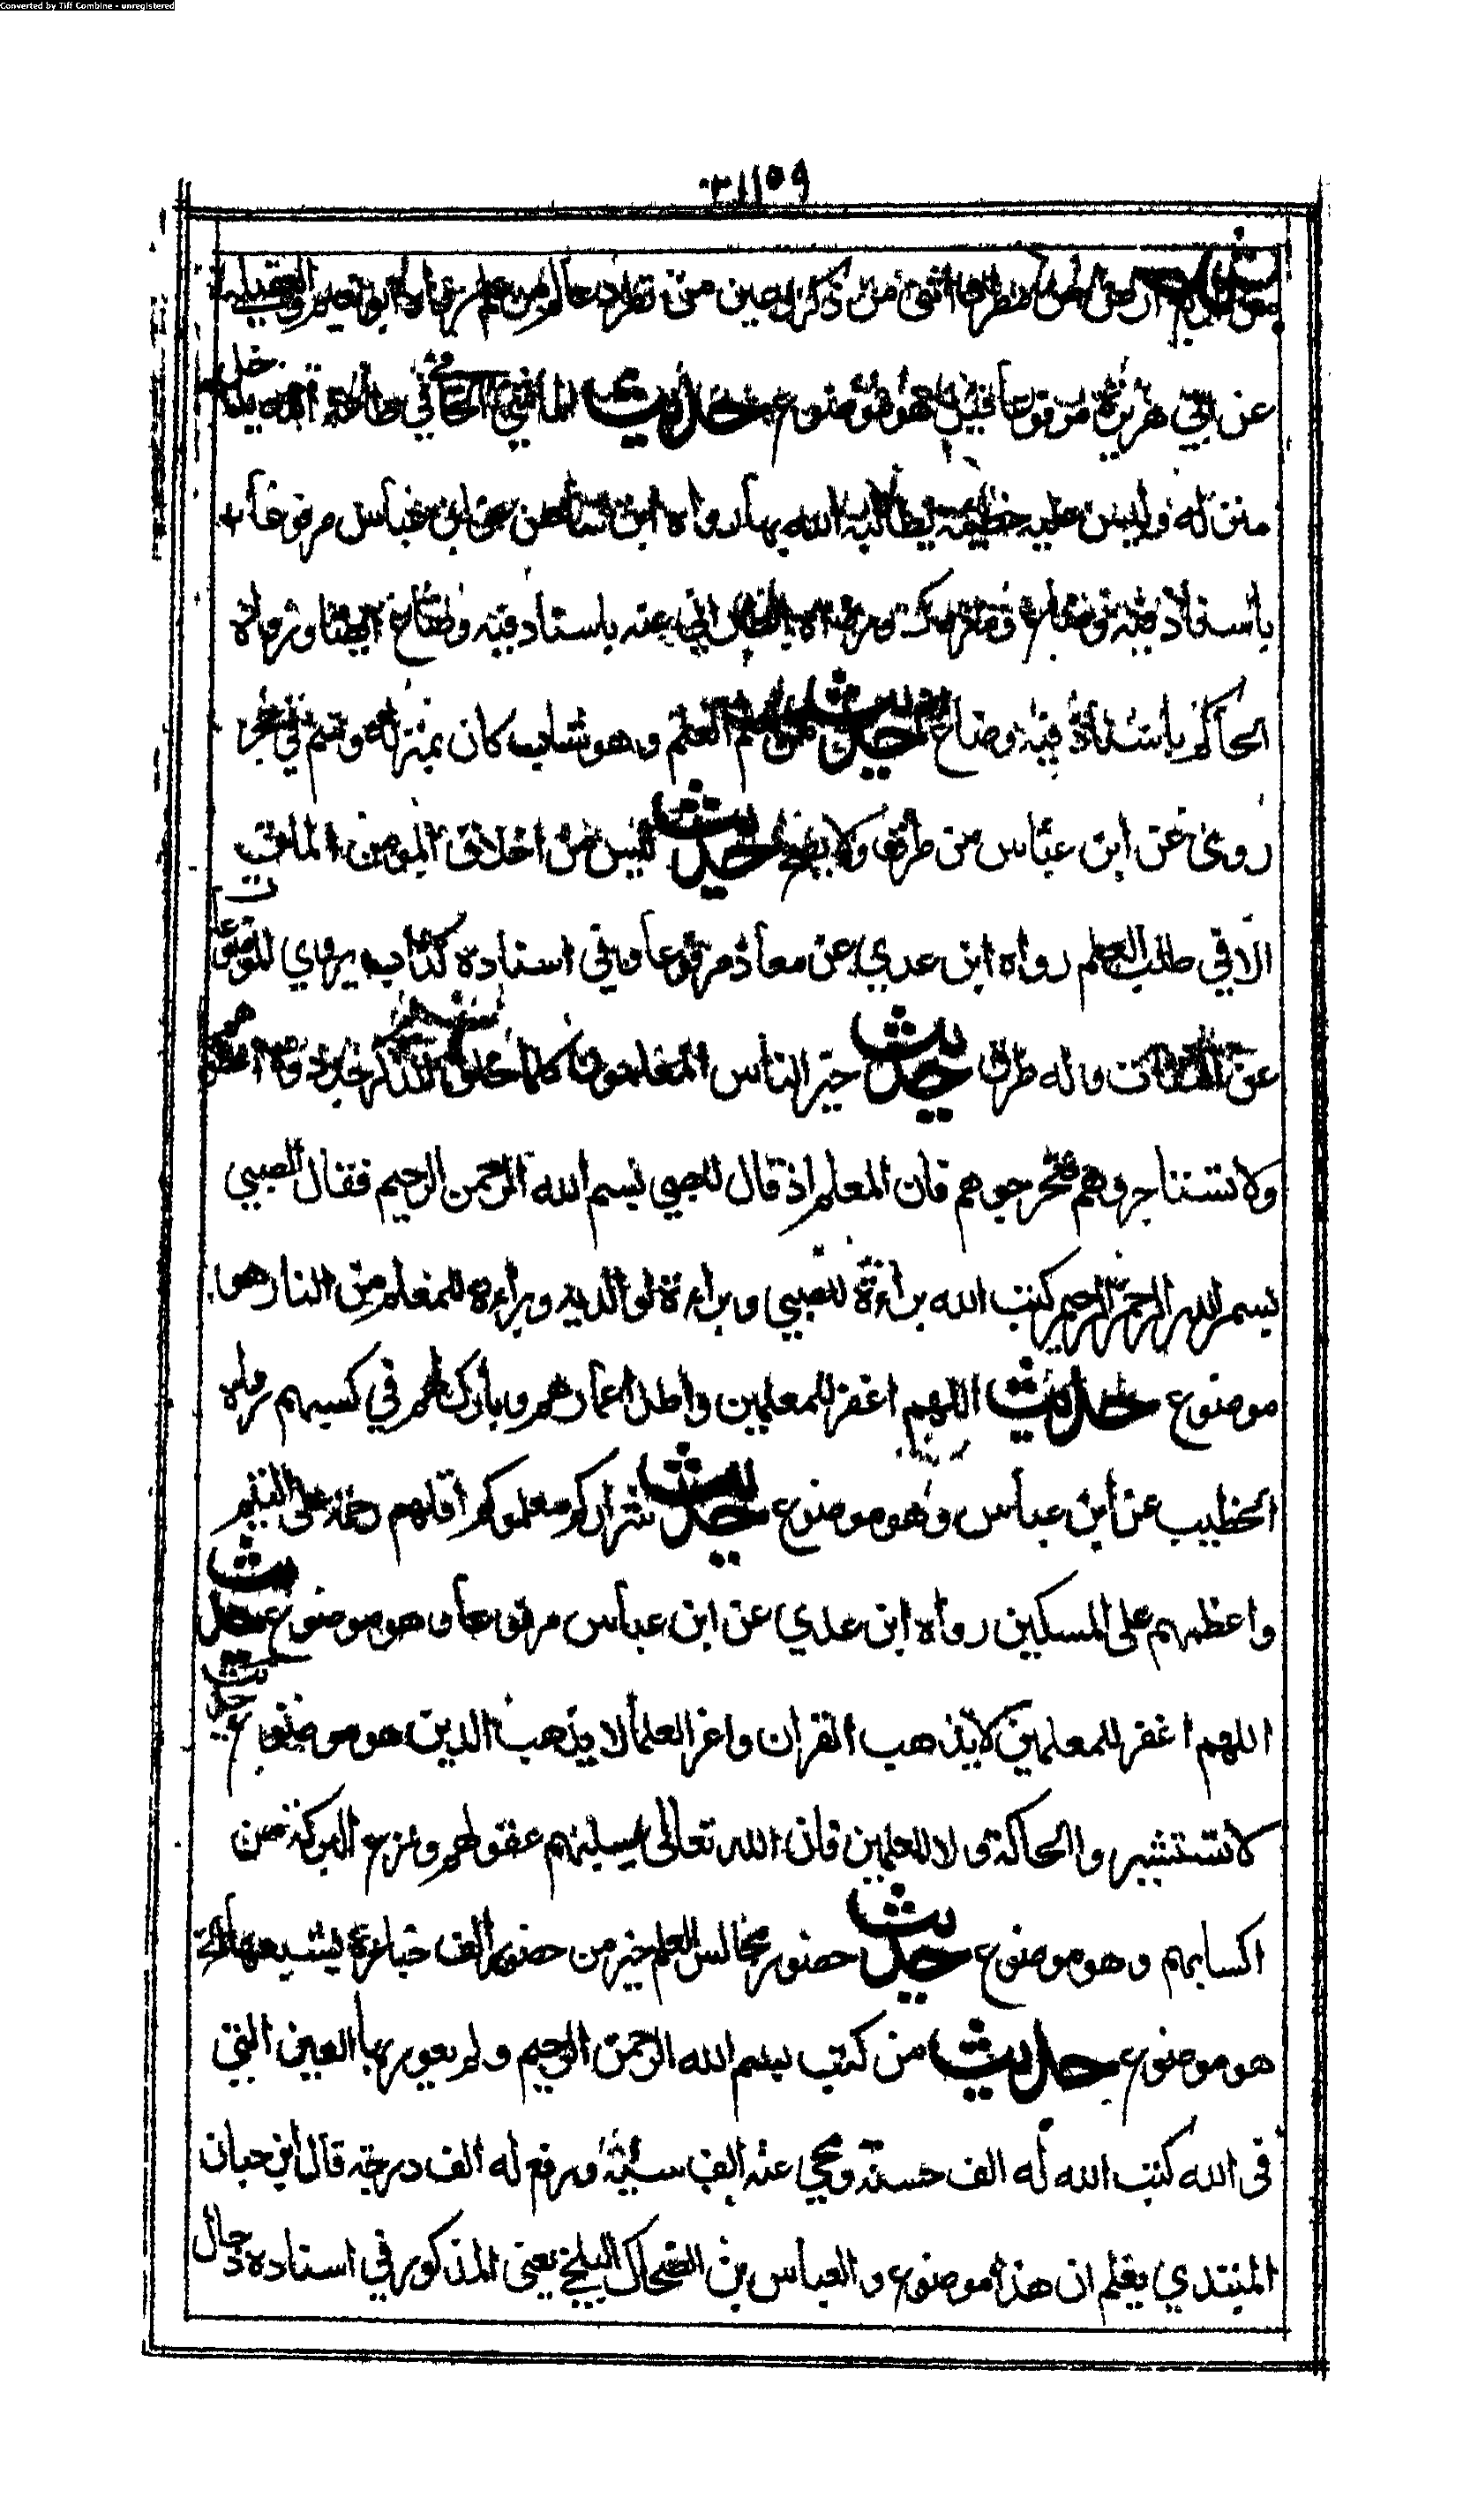 Converted by Tiff Combine - unregistered
من ذكر عين من
عن ابي هريرة مرفوعا هو موضوع حديث
منزله وليس عليه خطيئة يطالبه الله بها رواه ابن شاهين عن ابن عباس مرفوعا
باسناد فيه عنه باسناد فيه وضاع ايضا ورواه
الحاكم باسناد فيه وضاع حديث العلم وهو شاب كان بمنزلة وسم في حجر
روى عن ابن عباس من طرق ولا يصح حديث ليس من اخلاق المومن الملق
الا في طلب العلم رواه ابن عدي عن معاذ مرفوعا وفي اسناده كذاب يروي الموضوعات
عن الثقات وله طرق حديث خير الناس المعلمون كلما خلق الذكر جددوه اعطوهم
ولا تستاجروهم فتحرجوهم فان المعلم اذ قال للصبي بسم الله الرحمن الرحيم فقال الصبي
بسم الله الرحمن الرحيم كتب الله براءة للصبي وبراءة لوالديه وبراءة للمعلم من النار هو
موضوع حديث اللهم اغفر للمعلمين واطل اعمارهم وبارك لهم في كسبهم رواه
الخطيب عن ابن عباس وهو موضوع حديث شراركم معلموكم اقلهم رحمة على اليتيم
واغظهم على المسكين رواه ابن عدي عن ابن عباس مرفوعا وهو موضوع حديث
اللهم اغفر للمعلمين لا يذهب القران واعز العلما لا يذهب الدين هو موضوع حديث
لا تستشيروا الحاكة ولا المعلمين فان الله تعالى سلبهم عقولهم ونزع البركة من
اكسابهم وهو موضوع حديث حضور مجالس العلم خير من حضور الف جنازة يشيعها
هو موضوع حديث من كتب بسم الله الرحمن الرحيم ولم يعور بها العين التي
في الله كتب الله له الف حسنة ومحي عنه الف سيئة ورفع له الف درجة قال ابن حبان
المبتدي يعلم ان هذا موضوع والعباس بن الضحاك البلخي يعني المذكور في اسناده دجال